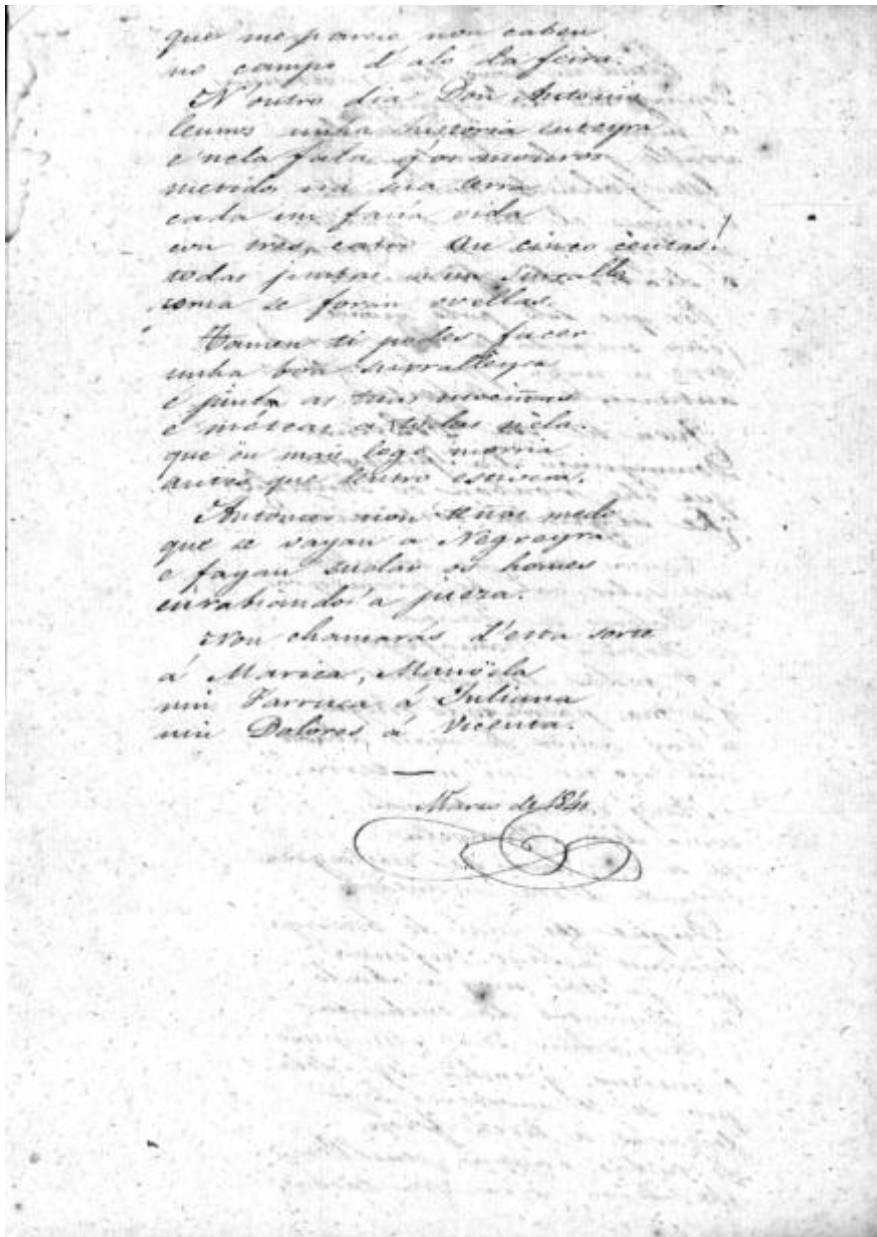 que me parece non caben
no campo d'alo da feira.
N'outro dia Don Antonio
leunos unha historia enteyra
e nela fala q'os mouros
metidos na sua terra
cada un facía vida
con tres, catro ou cinco centas!
todas juntas nun
coma se foran ovellas.
Tamen ti podes facer
unha boa surralleyra
e junta as tuas mociñas
e métea a todas nela.
que ou mais logo morria
antes que dentro estiveras.
Antonio non teñas medo
que se vayan a Negreyra
e fagan os homes
enrabiando a
Non chamarás d'esta sorte
á Marica, Manoëla
nin Farruca á Juliana
nin Dolores á Vicenta.
Marzo de 1841